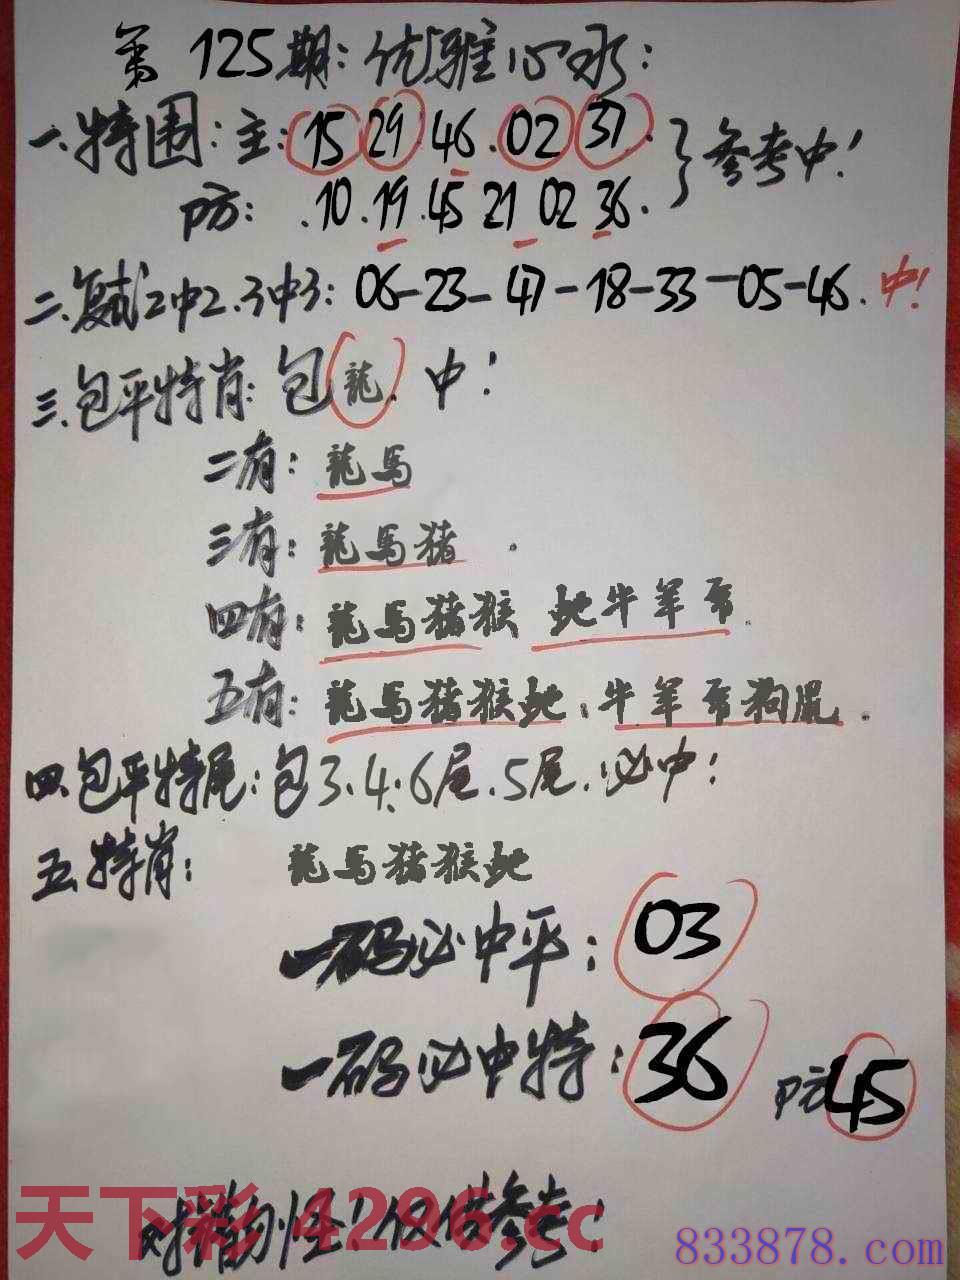 第125期:优雅心水:
一.特围:主:15 29 46.02 37.
防:.10.19.45 21 02 36.
}参考中!
二.复式2中2.3中3:06-23-47-18-33-05-46.中!
三.包平特肖:包龍.中!
二有:龍馬
三有:龍馬猪.
四有:龍馬猪猴 蛇牛羊
五有:龍馬猪猴蛇.牛羊 狗鼠.
四.包平特尾:包3.4.6尾.5尾.必中!
五.特肖:龍馬猪猴蛇
一码必中平:03
一码必中特:36 防45
错勿怪!仅供参考!
天下彩 4296.cc
833878.com